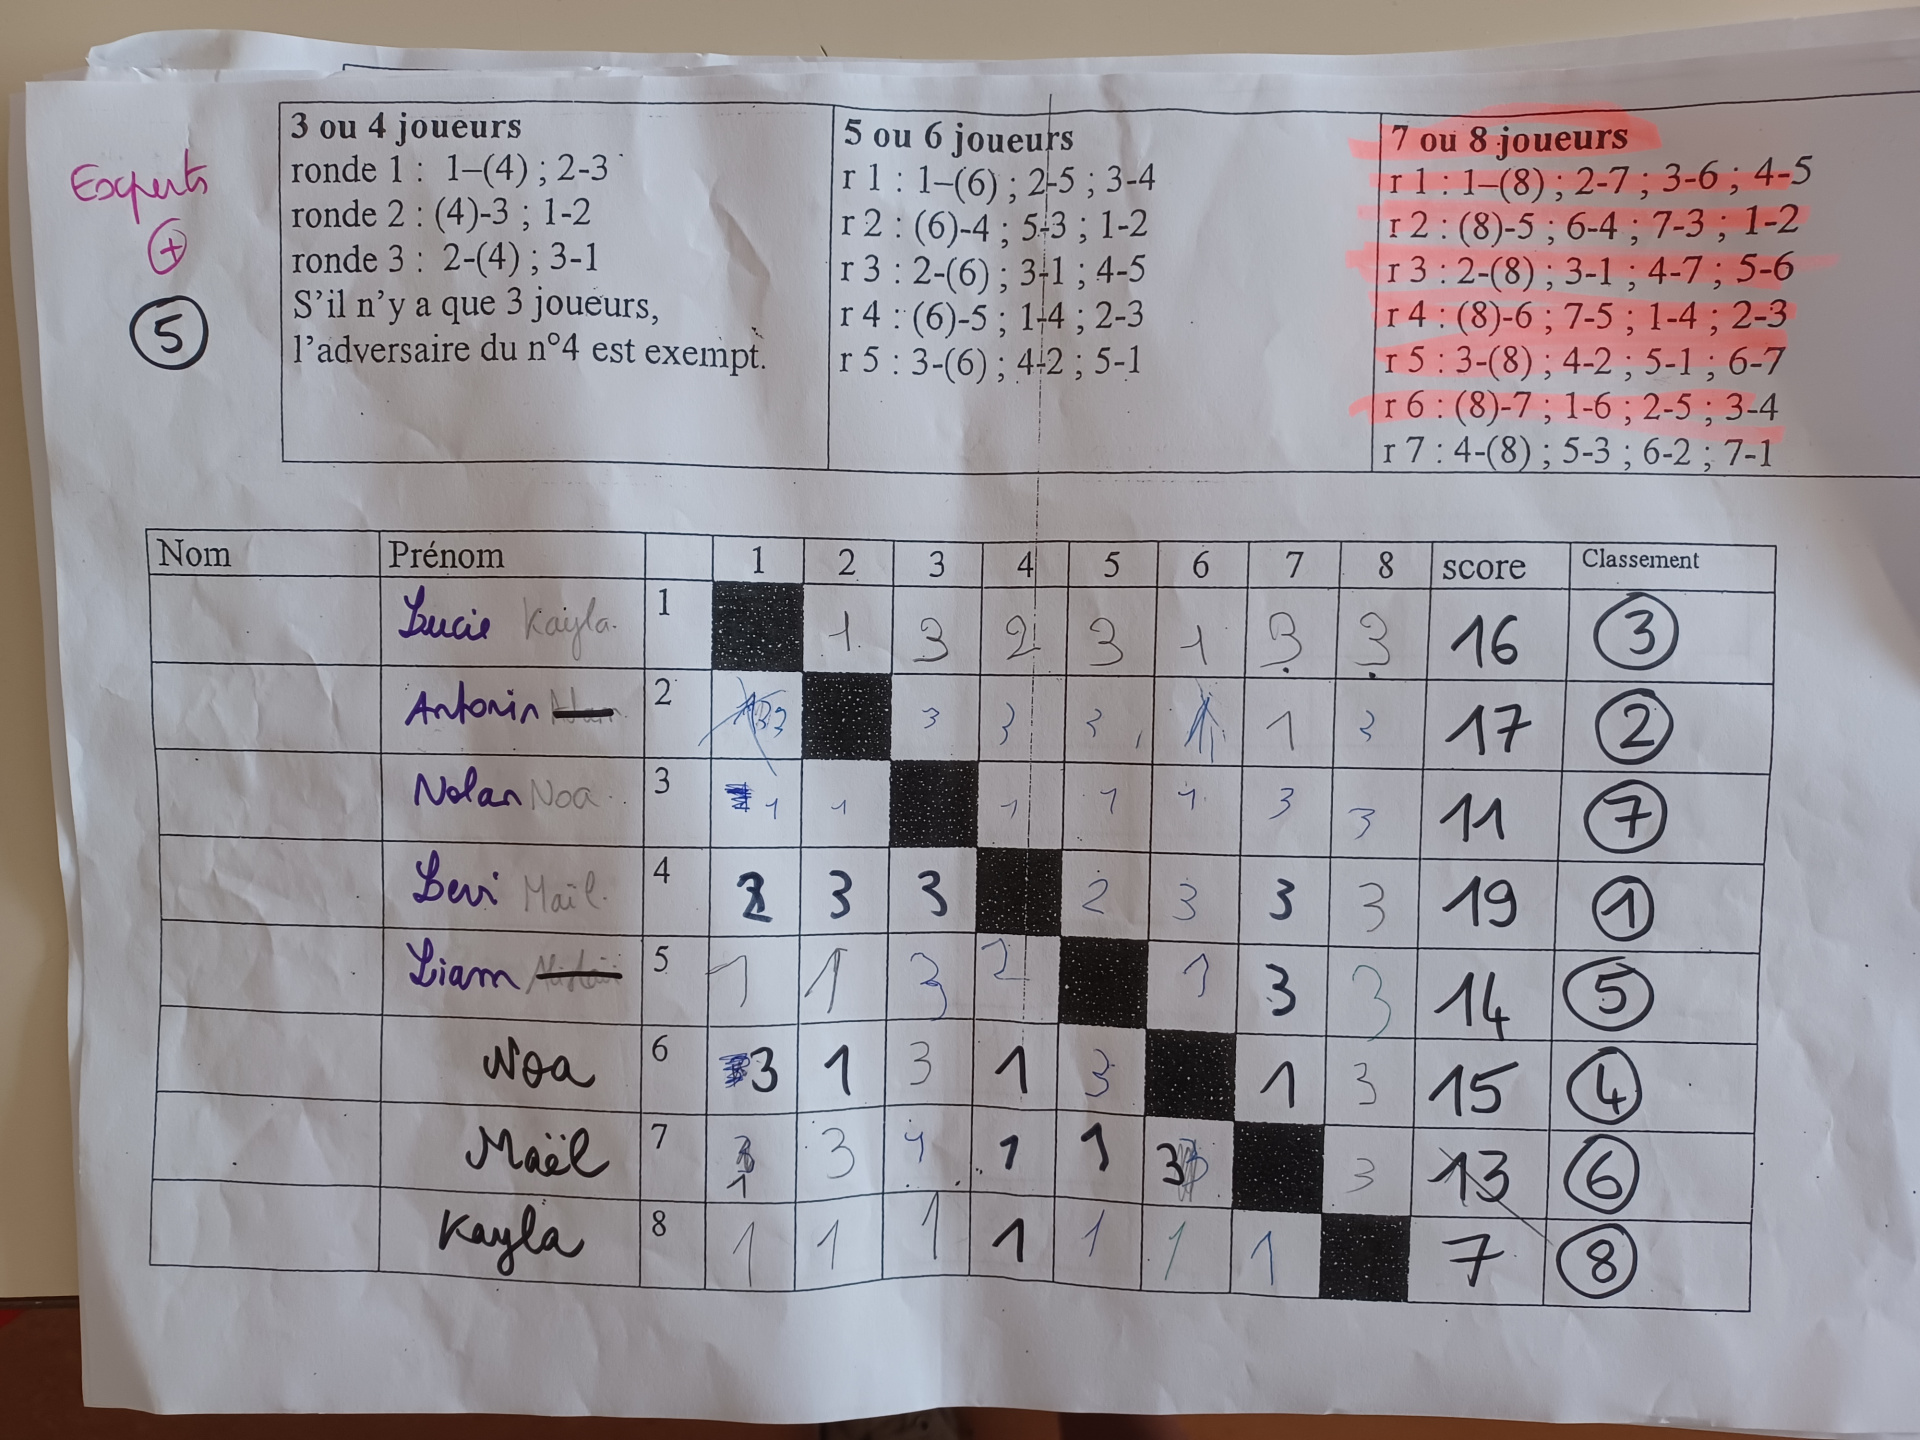 Experts
+
5
3 ou 4 joueurs
ronde 1 : 1–(4) ; 2-3
ronde 2 : (4)-3 ; 1-2
ronde 3 : 2-(4) ; 3-1
S'il n'y a que 3 joueurs,
l'adversaire du n°4 est exempt.
5 ou 6 joueurs
r 1 : 1–(6) ; 2-5 ; 3-4
r 2 : (6)-4 ; 5-3 ; 1-2
r 3 : 2-(6) ; 3-1 ; 4-5
r 4 : (6)-5 ; 1-4 ; 2-3
r 5 : 3-(6) ; 4-2 ; 5-1
7 ou 8 joueurs
r 1 : 1–(8) ; 2-7 ; 3-6 ; 4-5
r 2 : (8)-5 ; 6-4 ; 7-3 ; 1-2
r 3 : 2-(8) ; 3-1 ; 4-7 ; 5-6
r 4 : (8)-6 ; 7-5 ; 1-4 ; 2-3
r 5 : 3-(8) ; 4-2 ; 5-1 ; 6-7
r 6 : (8)-7 ; 1-6 ; 2-5 ; 3-4
r 7 : 4-(8) ; 5-3 ; 6-2 ; 7-1
Nom Prénom 1 2 3 4 5 6 7 8 score Classement
Lucie Kayla 1 1 3 2 3 1 3 3 16 3
Antonin 2 3 3 3 3 1 3 17 2
Nolan Noa 3 1 1 1 1 1 3 3 11 7
Levi Maël 4 2 3 3 2 3 3 3 19 1
Liam 5 1 1 3 2 1 3 3 14 5
Noa 6 3 1 3 1 3 1 3 15 4
Maël 7 1 3 1 1 1 3 3 13 6
Kayla 8 1 1 1 1 1 1 1 7 8